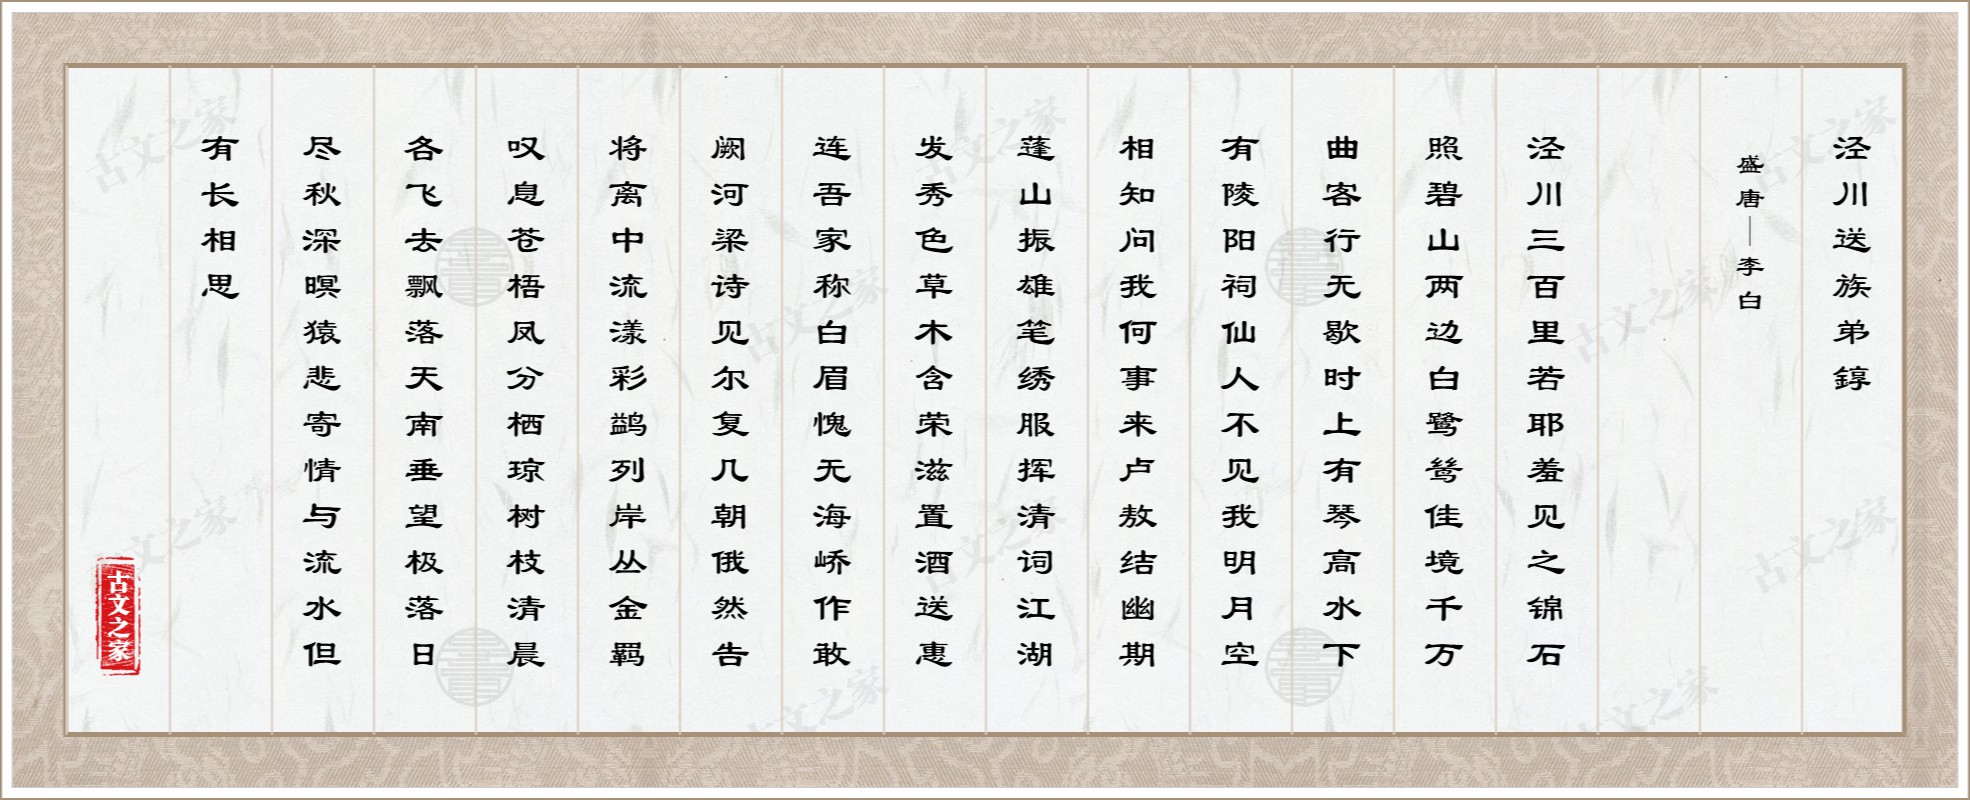 泾川送族弟錞
盛唐—李白
泾川三百里若耶羞见之锦石
照碧山两边白鹭鸶佳境千万
曲客行无歇时上有琴高水下
有陵阳祠仙人不见我明月空
相知问我何事来卢敖结幽期
蓬山振雄笔绣服挥清词江湖
发秀色草木含荣滋置酒送惠
连吾家称白眉愧无海峤作敢
阙河梁诗见尔复几朝俄然告
将离中流漾彩鹢列岸丛金羁
叹息苍梧凤分栖琼树枝清晨
各飞去飘落天南垂望极落日
尽秋深暝猿悲寄情与流水但
有长相思
古文之家